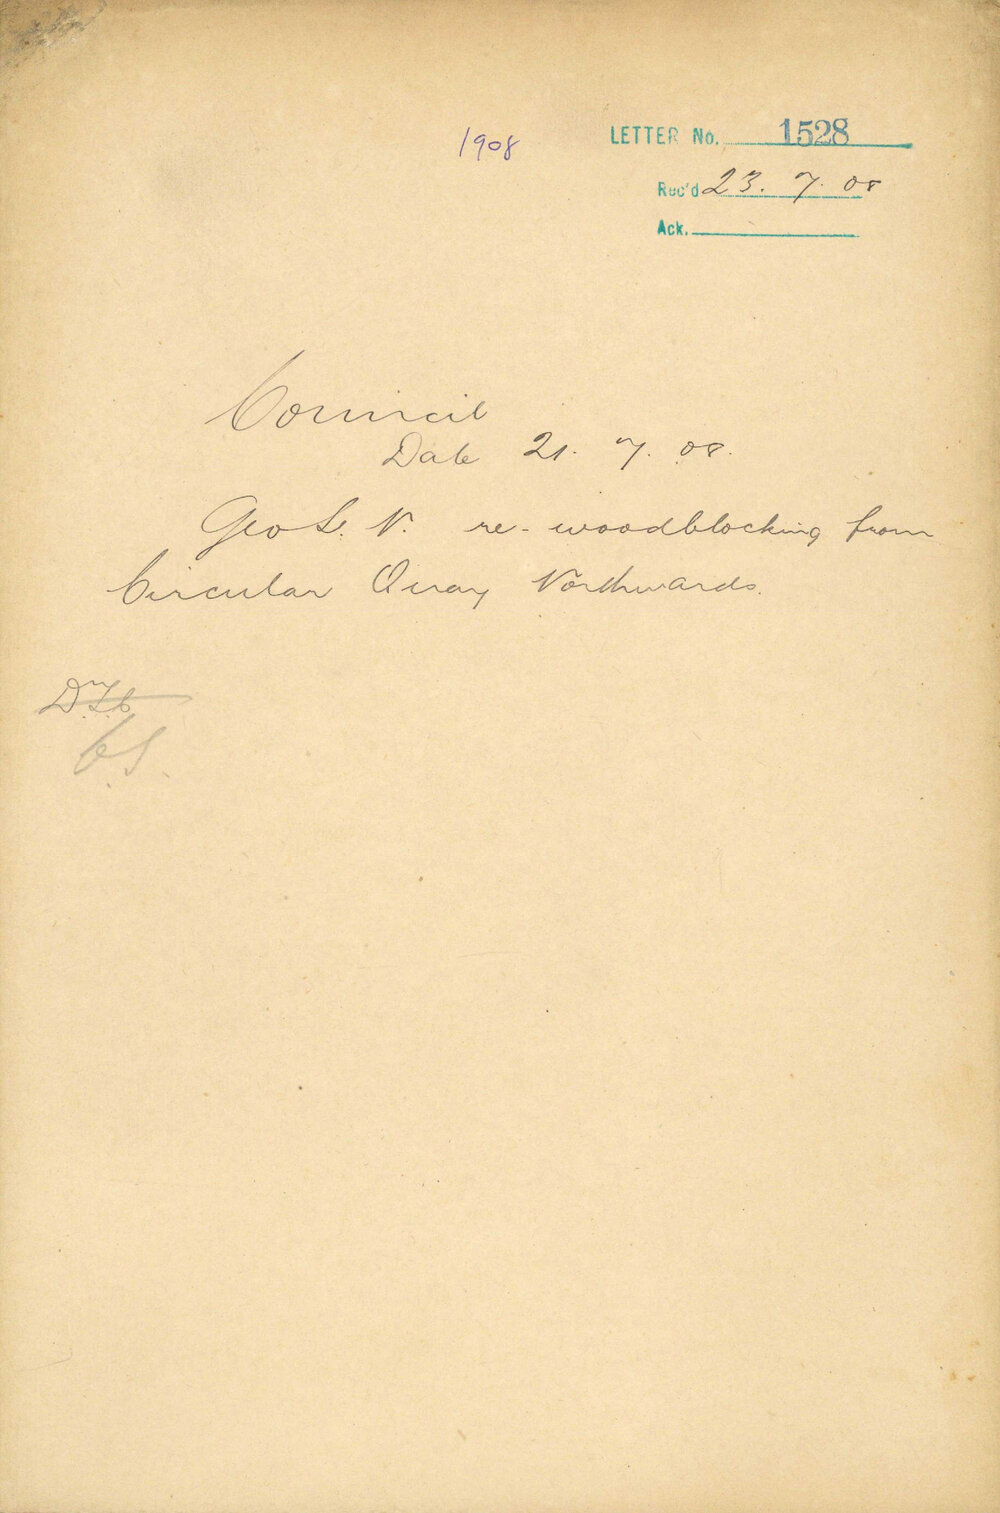 1908
LETTER No. 1528
Rec'd 23. 7. 08
Ack.
Council
Date 21. 7. 08.
Geo St. N. re-woodblocking from
Circular Quay Northwards.
C.S.